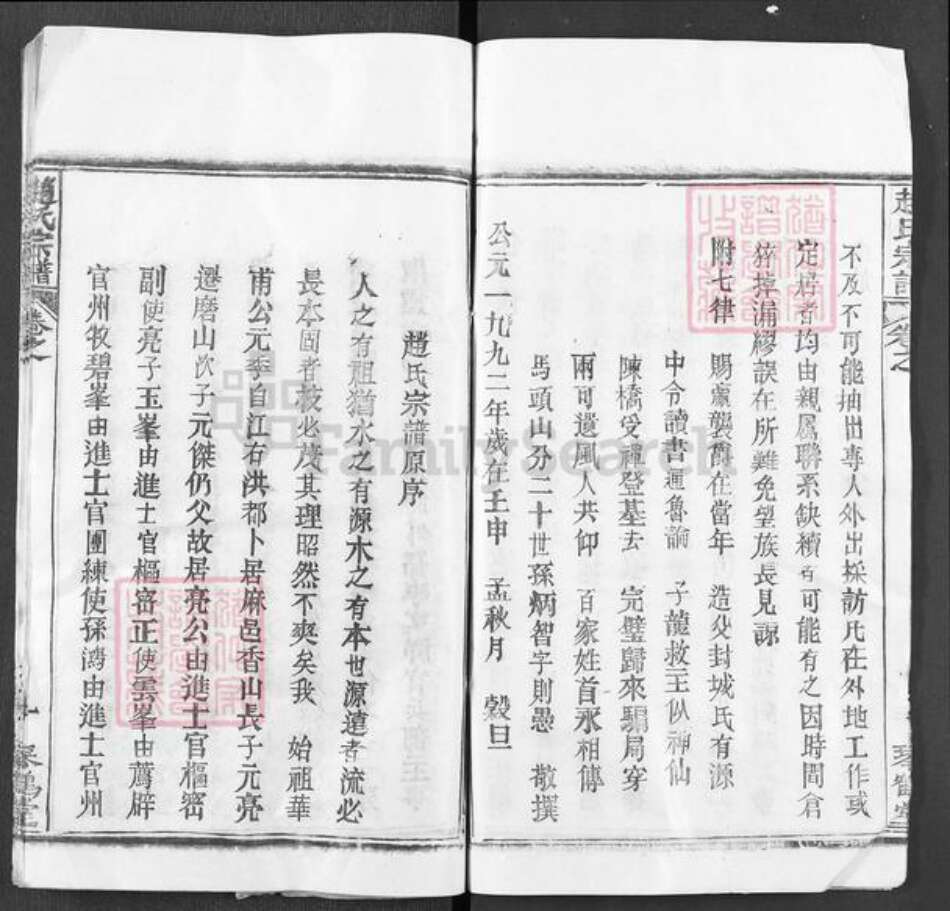 趙氏宗譜
卷之
琴鶴堂
不及不可能抽出專人外出採訪凡在外地工作或
定居者均由親屬聯系缺續有可能有之因時間倉
猝掉漏繆誤在所難免望族長見諒
附七律
賜當年　造父封城氏有源
中令讀書通魯論　子龍救主似神仙
陳橋受禪登基去　完璧歸來騙局穿
兩可遺風人共仰　百家姓首永相傳
馬頭山分二十世孫炳智字則愚　敬撰
公元一九九二年歲在壬申　孟秋月　穀旦
趙氏宗譜原序
人之有祖猶水之有源木之有本也源遠者流必
長本固者枝必茂其理昭然不爽矣我　始祖華
甫公元季自江右洪都卜居麻邑香山長子元亮
遷磨山次子元傑仍父故居亮公由進士官樞密
副使亮子玉峯由進士官樞密正使雲峯由薦辟
官州牧碧峯由進士官團練使孫鴻由進士官州
趙氏宗譜
卷之
九
琴鶴堂
FamilySearch